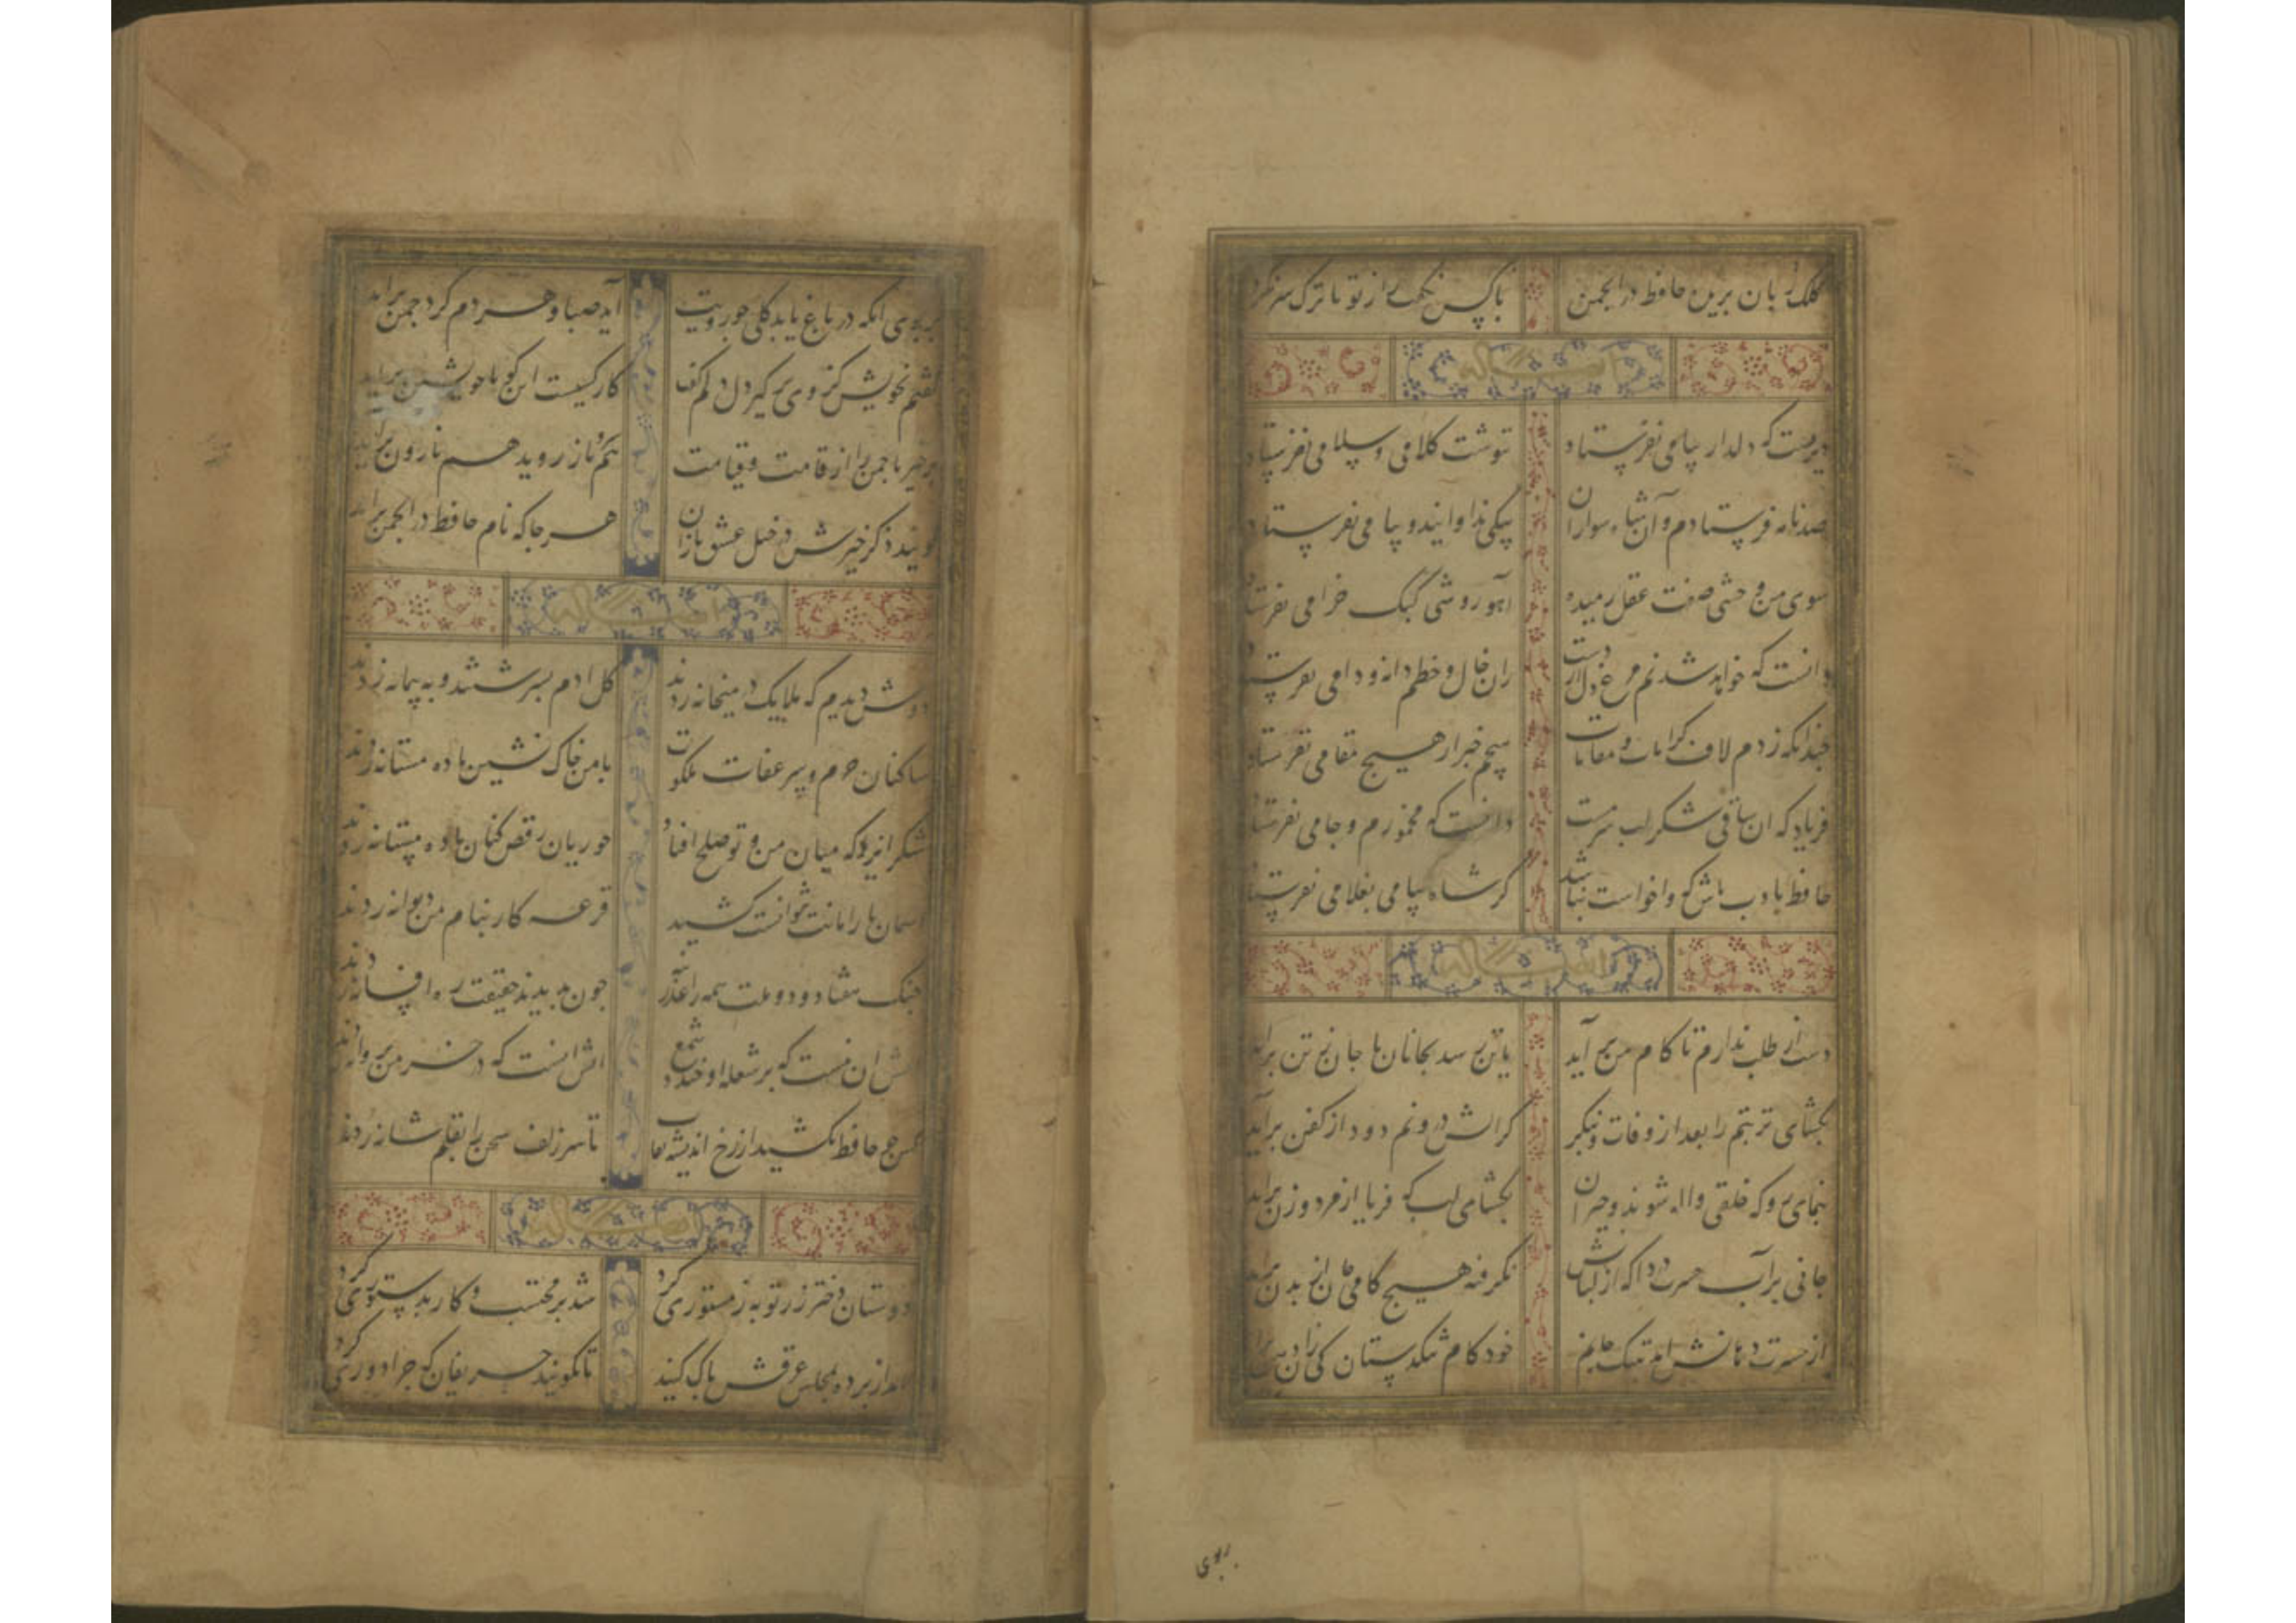 کلک زبان بریده حافظ در انجمن باکس نکفت راز تو تا ترک سر نکرد
دیریست که دلدار پیامی نفرستاد ننوشت کلامی و سلامی نفرستاد
صد نامه فرستادم و آن شاه سواران پیکی ندوانید و پیامی نفرستاد
سوی من وحشی صفت عقل رمیده آهو روشی کبک خرامی نفرستاد
دانست که خواهد شدنم مرغ دل از دست زان خال و خطم دانه و دامی نفرستاد
چندانکه زدم لاف کرامات و مقامات هیچم خبر از هیچ مقامی نفرستاد
فریاد که ان ساقی شکر لب سرمست دانست که مخمورم و جامی نفرستاد
حافظ بادب باش که واخواست نباشد کر شاه پیامی بغلامی نفرستاد
دست از طلب ندارم تا کام من بر آید یا تن رسد بجانان یا جان ز تن براید
بکشای تربتم را بعد از وفات و بنکر کز اتش درونم دود از کفن برآید
بنمای رو که خلقی واله شوند و حیران بکشای لب که فریاد از مرد و زن براید
جانی برآب حسرت در دل که از لبانش نکرفته هیچ کامی جان از بدن براید
از حسرت دهانش امد بتنک جانم خود کام تنکدستان کی زان دهن براید
بربوی
بربوی انکه در باغ یابد کلی چو رویت آید صبا و هر دم کرد چمن براید
کفتم بخویش کز وی برکیر دل دلم کفت کار کسیست این کو با خویشتن براید
برخیز تا چمن را از قامت و قیامت هم ناز روید هم نارون براید
کویند ذکر خیرش در خیل عشق بازان هر جا که نام حافظ در انجمن براید
دوش دیدم که ملایک در میخانه زدند کل ادم بسرشتند و به پیمانه زدند
ساکنان حرم و سر عفات ملکوت با من خاک نشین باده مستانه زدند
شکر ایزد که میان من و تو صلح افتاد حوریان رقص کنان باده مستانه زدند
آسمان بار امانت نتوانست کشید قرعه کار بنام من دیوانه زدند
جنک هفتاد و دو ملت همه را عذر بنه چون ندیدند حقیقت ره افسانه زدند
آتش ان نیست که بر شعله او خندد شمع اتش انست که در خرمن پروانه زدند
کس چو حافظ نکشید از رخ اندیشه نقاب تا سر زلف سخن را بقلم شانه زدند
دوستان دختر رز توبه ز مستوری کرد شد بر محتسب و کار بدستوری کرد
امد از پرده بمجلس عرقش پاک کنید تا نکویند حریفان که چرا دوری کرد